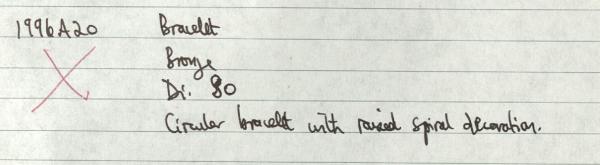 1996A20 Bracelet
Bronze
Di. 80
Circular bracelet with raised spiral decoration.